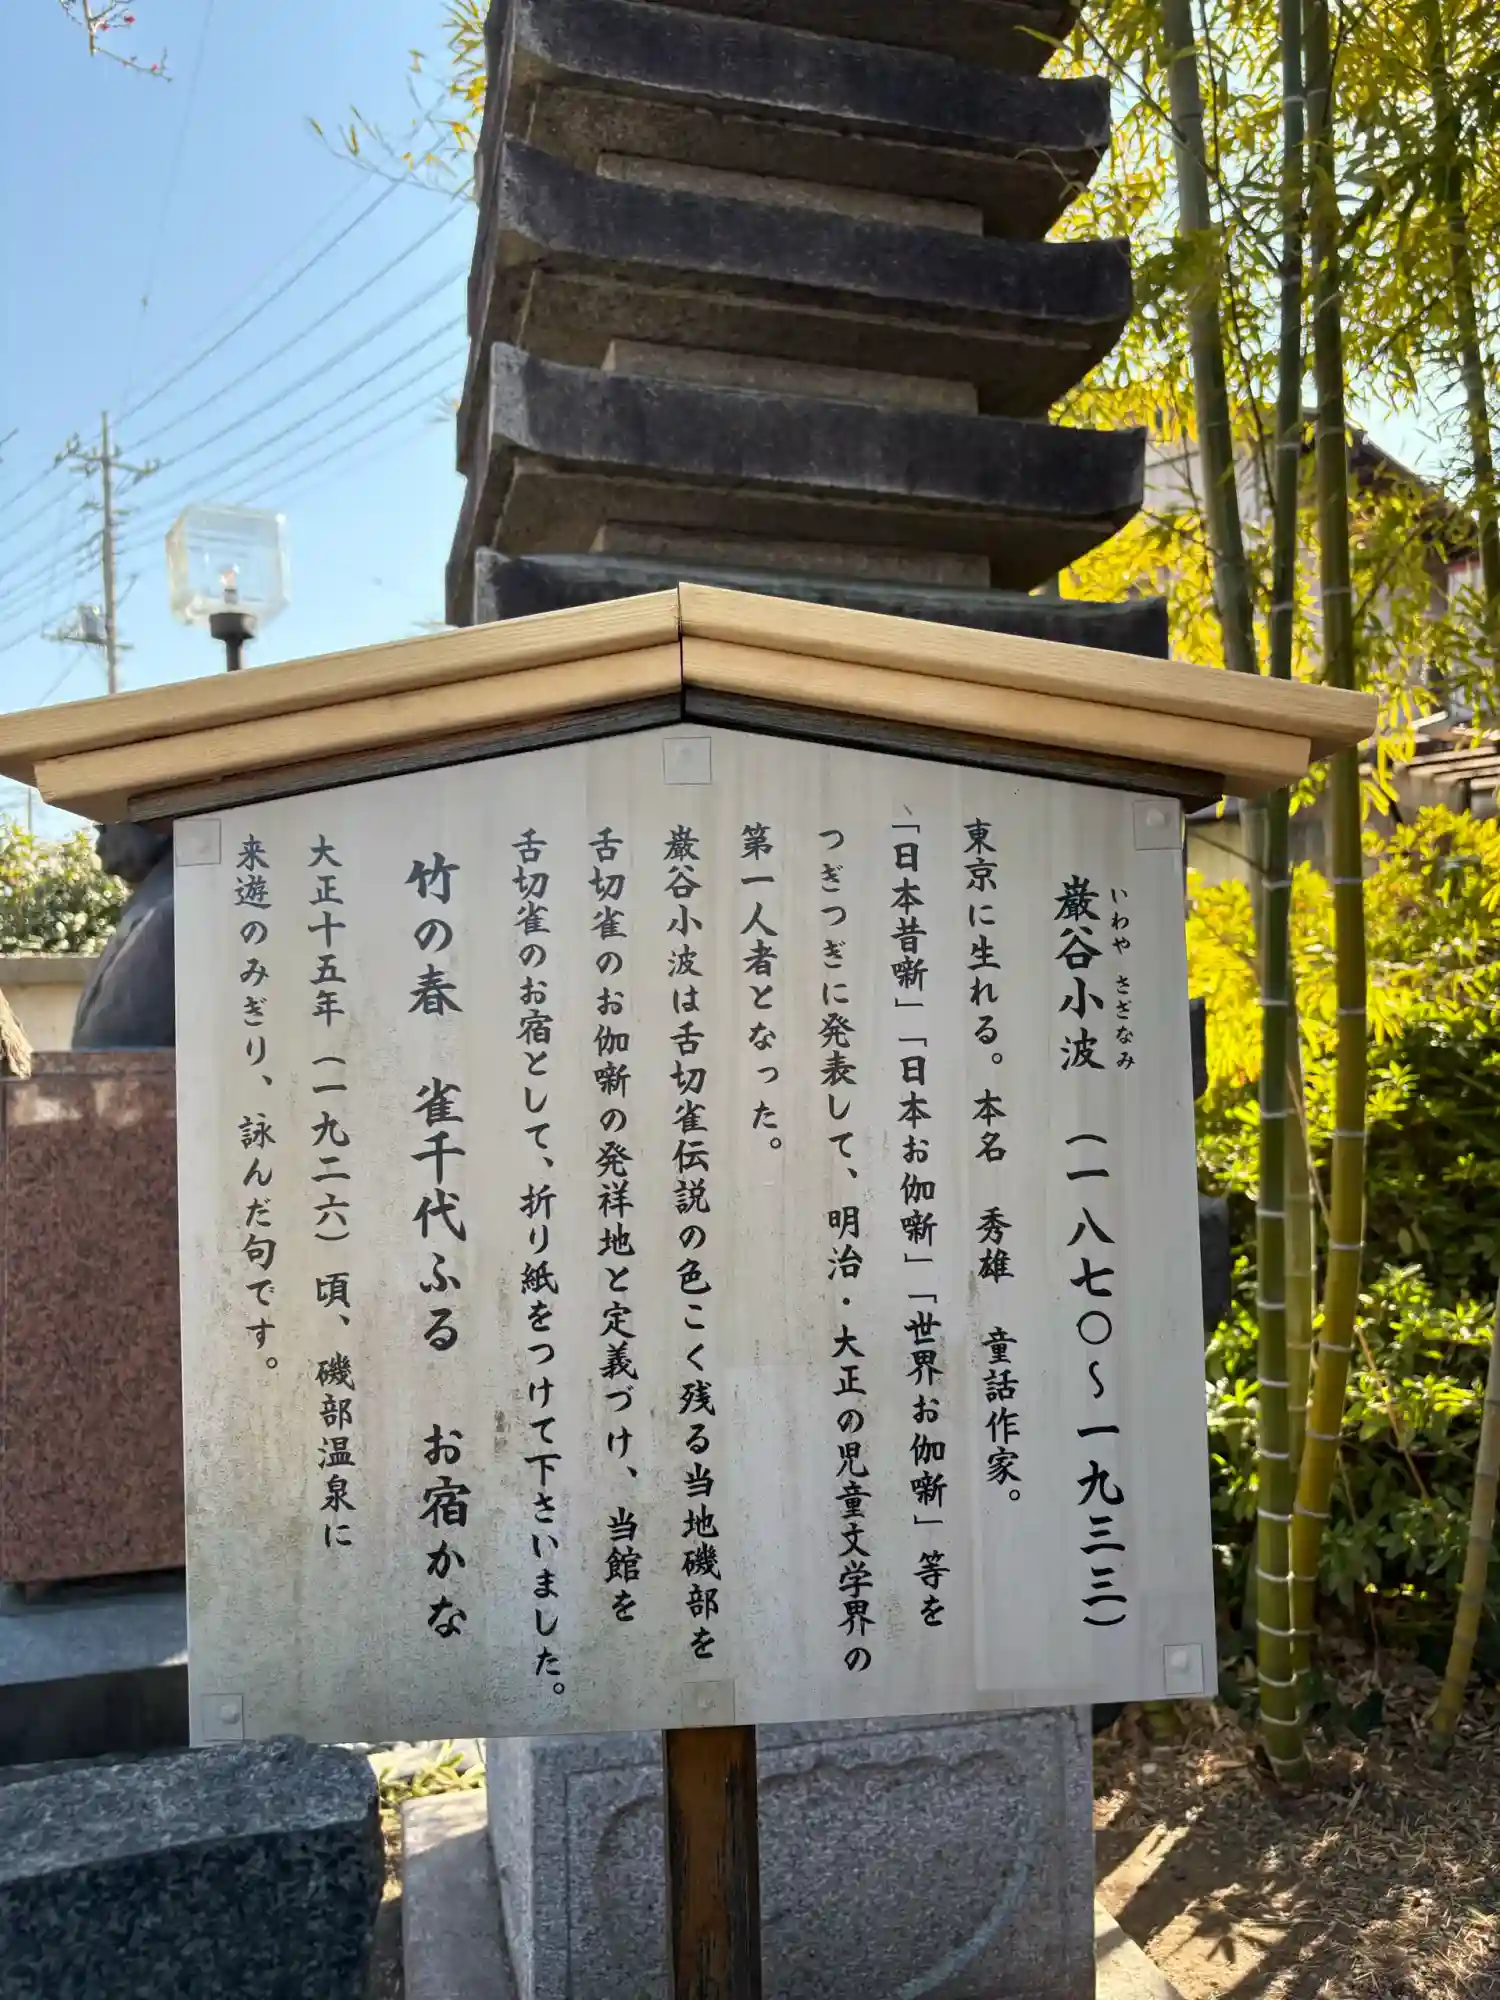 巌谷小波 (一八七〇〜一九三三)
いわや さざなみ
東京に生れる。本名 秀雄 童話作家。
「日本昔噺」「日本お伽噺」「世界お伽噺」等を
つぎつぎに発表して、明治・大正の児童文学界の
第一人者となった。
巌谷小波は舌切雀伝説の色こく残る当地磯部を
舌切雀のお伽噺の発祥地と定義づけ、当館を
舌切雀のお宿として、折り紙をつけて下さいました。
竹の春 雀千代ふる お宿かな
大正十五年(一九二六)頃、磯部温泉に
来遊のみぎり、詠んだ句です。